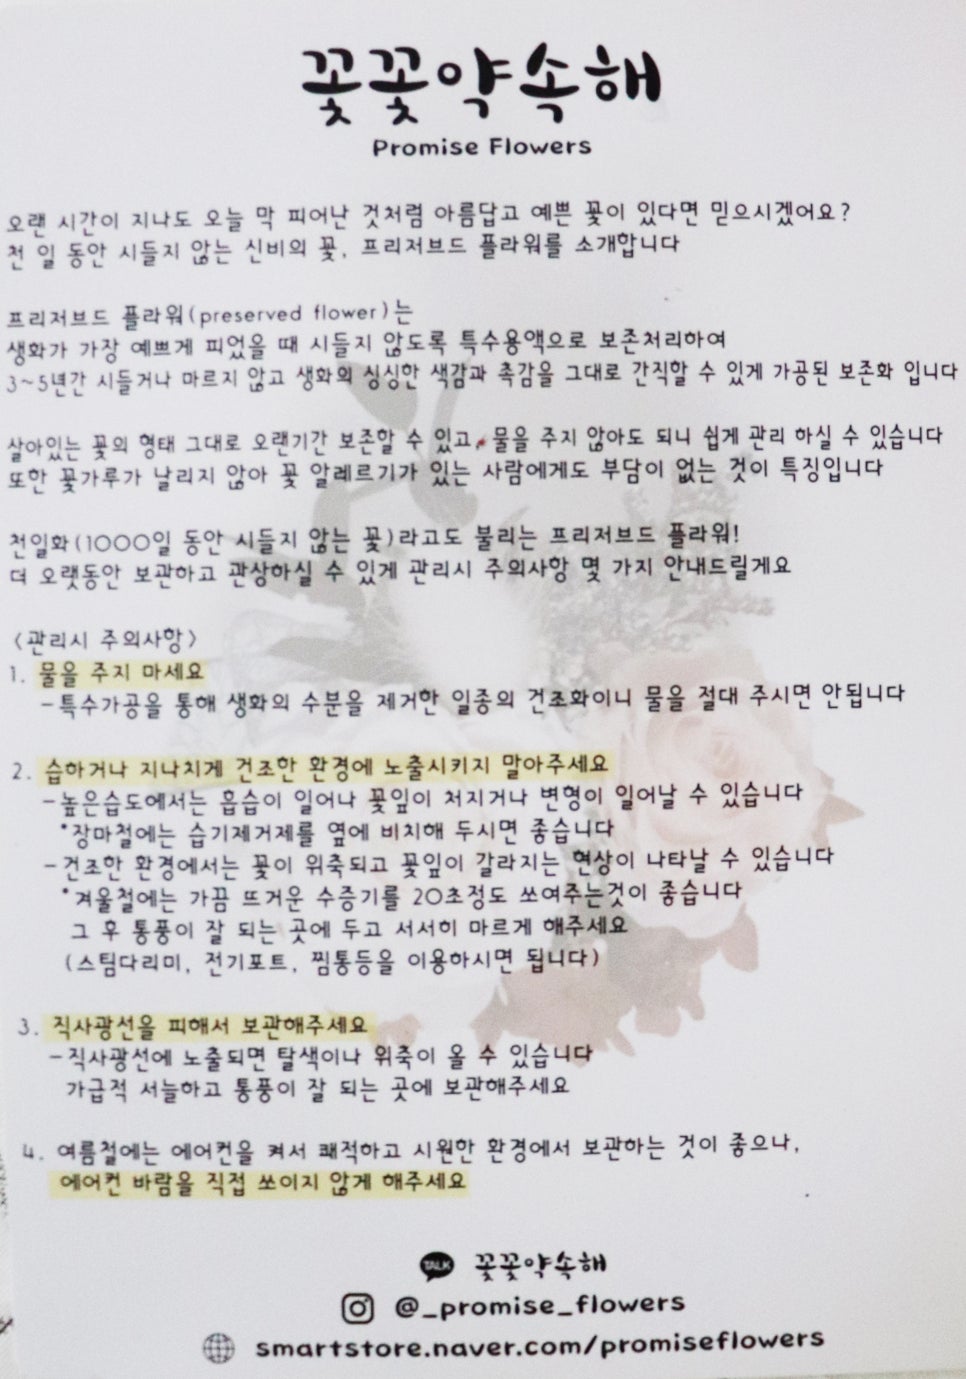 꽃꽃약속해
Promise Flowers
오랜 시간이 지나도 오늘 막 피어난 것처럼 아름답고 예쁜 꽃이 있다면 믿으시겠어요?
천 일 동안 시들지 않는 신비의 꽃, 프리저브드 플라워를 소개합니다
프리저브드 플라워(preserved flower)는
생화가 가장 예쁘게 피었을 때 시들지 않도록 특수용액으로 보존처리하여
3~5년간 시들거나 마르지 않고 생화의 싱싱한 색감과 촉감을 그대로 간직할 수 있게 가공된 보존화 입니다
살아있는 꽃의 형태 그대로 오랜기간 보존할 수 있고, 물을 주지 않아도 되니 쉽게 관리 하실 수 있습니다
또한 꽃가루가 날리지 않아 꽃 알레르기가 있는 사람에게도 부담이 없는 것이 특징입니다
천일화(1000일 동안 시들지 않는 꽃)라고도 불리는 프리저브드 플라워!
더 오랫동안 보관하고 관상하실 수 있게 관리시 주의사항 몇 가지 안내드릴게요
<관리시 주의사항>
1. 물을 주지 마세요
-특수가공을 통해 생화의 수분을 제거한 일종의 건조화이니 물을 절대 주시면 안됩니다
2. 습하거나 지나치게 건조한 환경에 노출시키지 말아주세요
-높은습도에서는 흡습이 일어나 꽃잎이 처지거나 변형이 일어날 수 있습니다
*장마철에는 습기제거제를 옆에 비치해 두시면 좋습니다
-건조한 환경에서는 꽃이 위축되고 꽃잎이 갈라지는 현상이 나타날 수 있습니다
*겨울철에는 가끔 뜨거운 수증기를 20초정도 쏘여주는것이 좋습니다
그 후 통풍이 잘 되는 곳에 두고 서서히 마르게 해주세요
(스팀다리미, 전기포트, 찜통등을 이용하시면 됩니다)
3. 직사광선을 피해서 보관해주세요
-직사광선에 노출되면 탈색이나 위축이 올 수 있습니다
가급적 서늘하고 통풍이 잘 되는 곳에 보관해주세요
4. 여름철에는 에어컨을 켜서 쾌적하고 시원한 환경에서 보관하는 것이 좋으나,
에어컨 바람을 직접 쏘이지 않게 해주세요
TALK 꽃꽃약속해
@_promise_flowers
smartstore.naver.com/promiseflowers